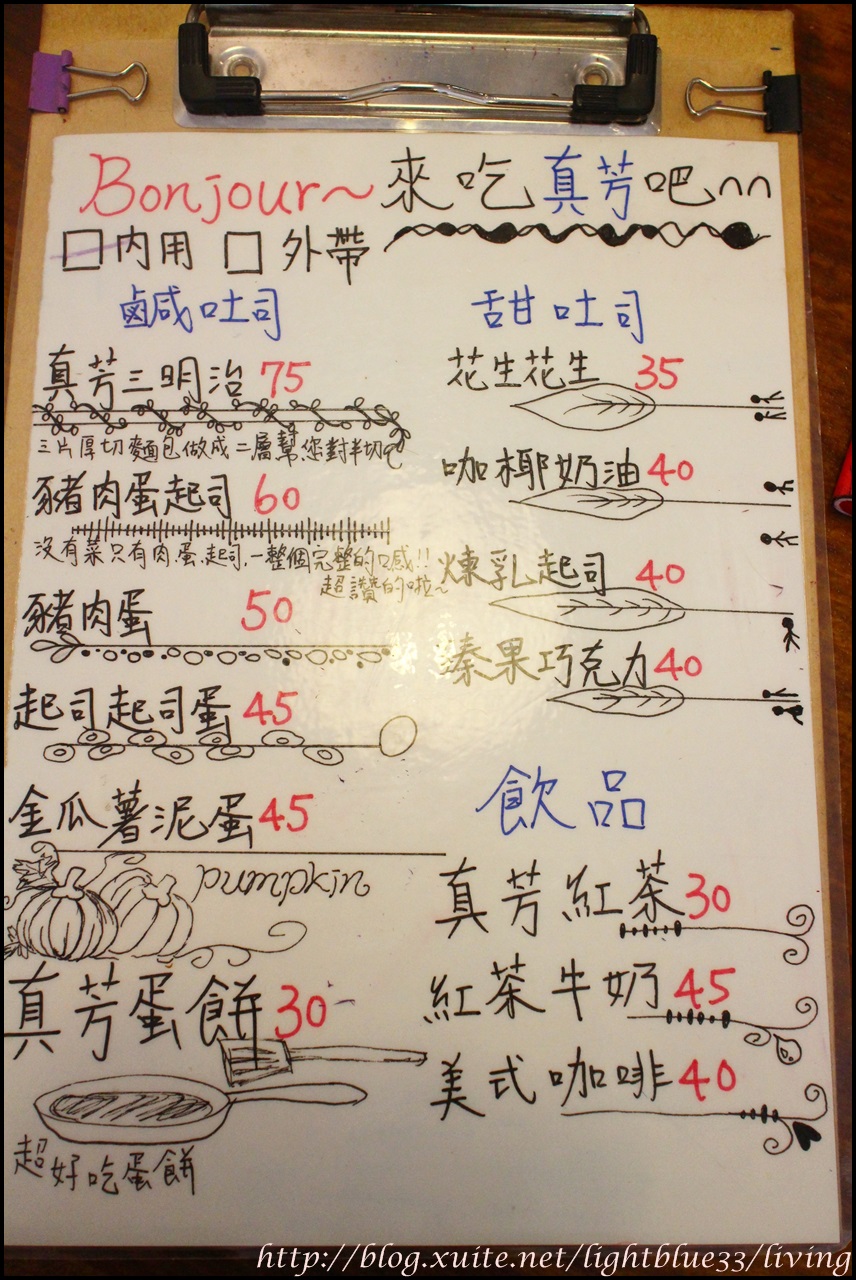 Bonjour~來吃真芳吧∩∩
□內用 □外帶
鹹吐司
真芳三明治 75
三片厚切麵包做成二層幫您對半切
豬肉蛋起司 60
沒有菜只有肉.蛋.起司,一整個完整的口感!!
超讚的啦~
豬肉蛋 50
起司起司蛋 45
金瓜薯泥蛋 45
pumpkin
真芳蛋餅 30
超好吃蛋餅
甜吐司
花生花生 35
咖椰奶油 40
煉乳起司 40
榛果巧克力 40
飲品
真芳紅茶 30
紅茶牛奶 45
美式咖啡 40
http://blog.xuite.net/lightblue33/living